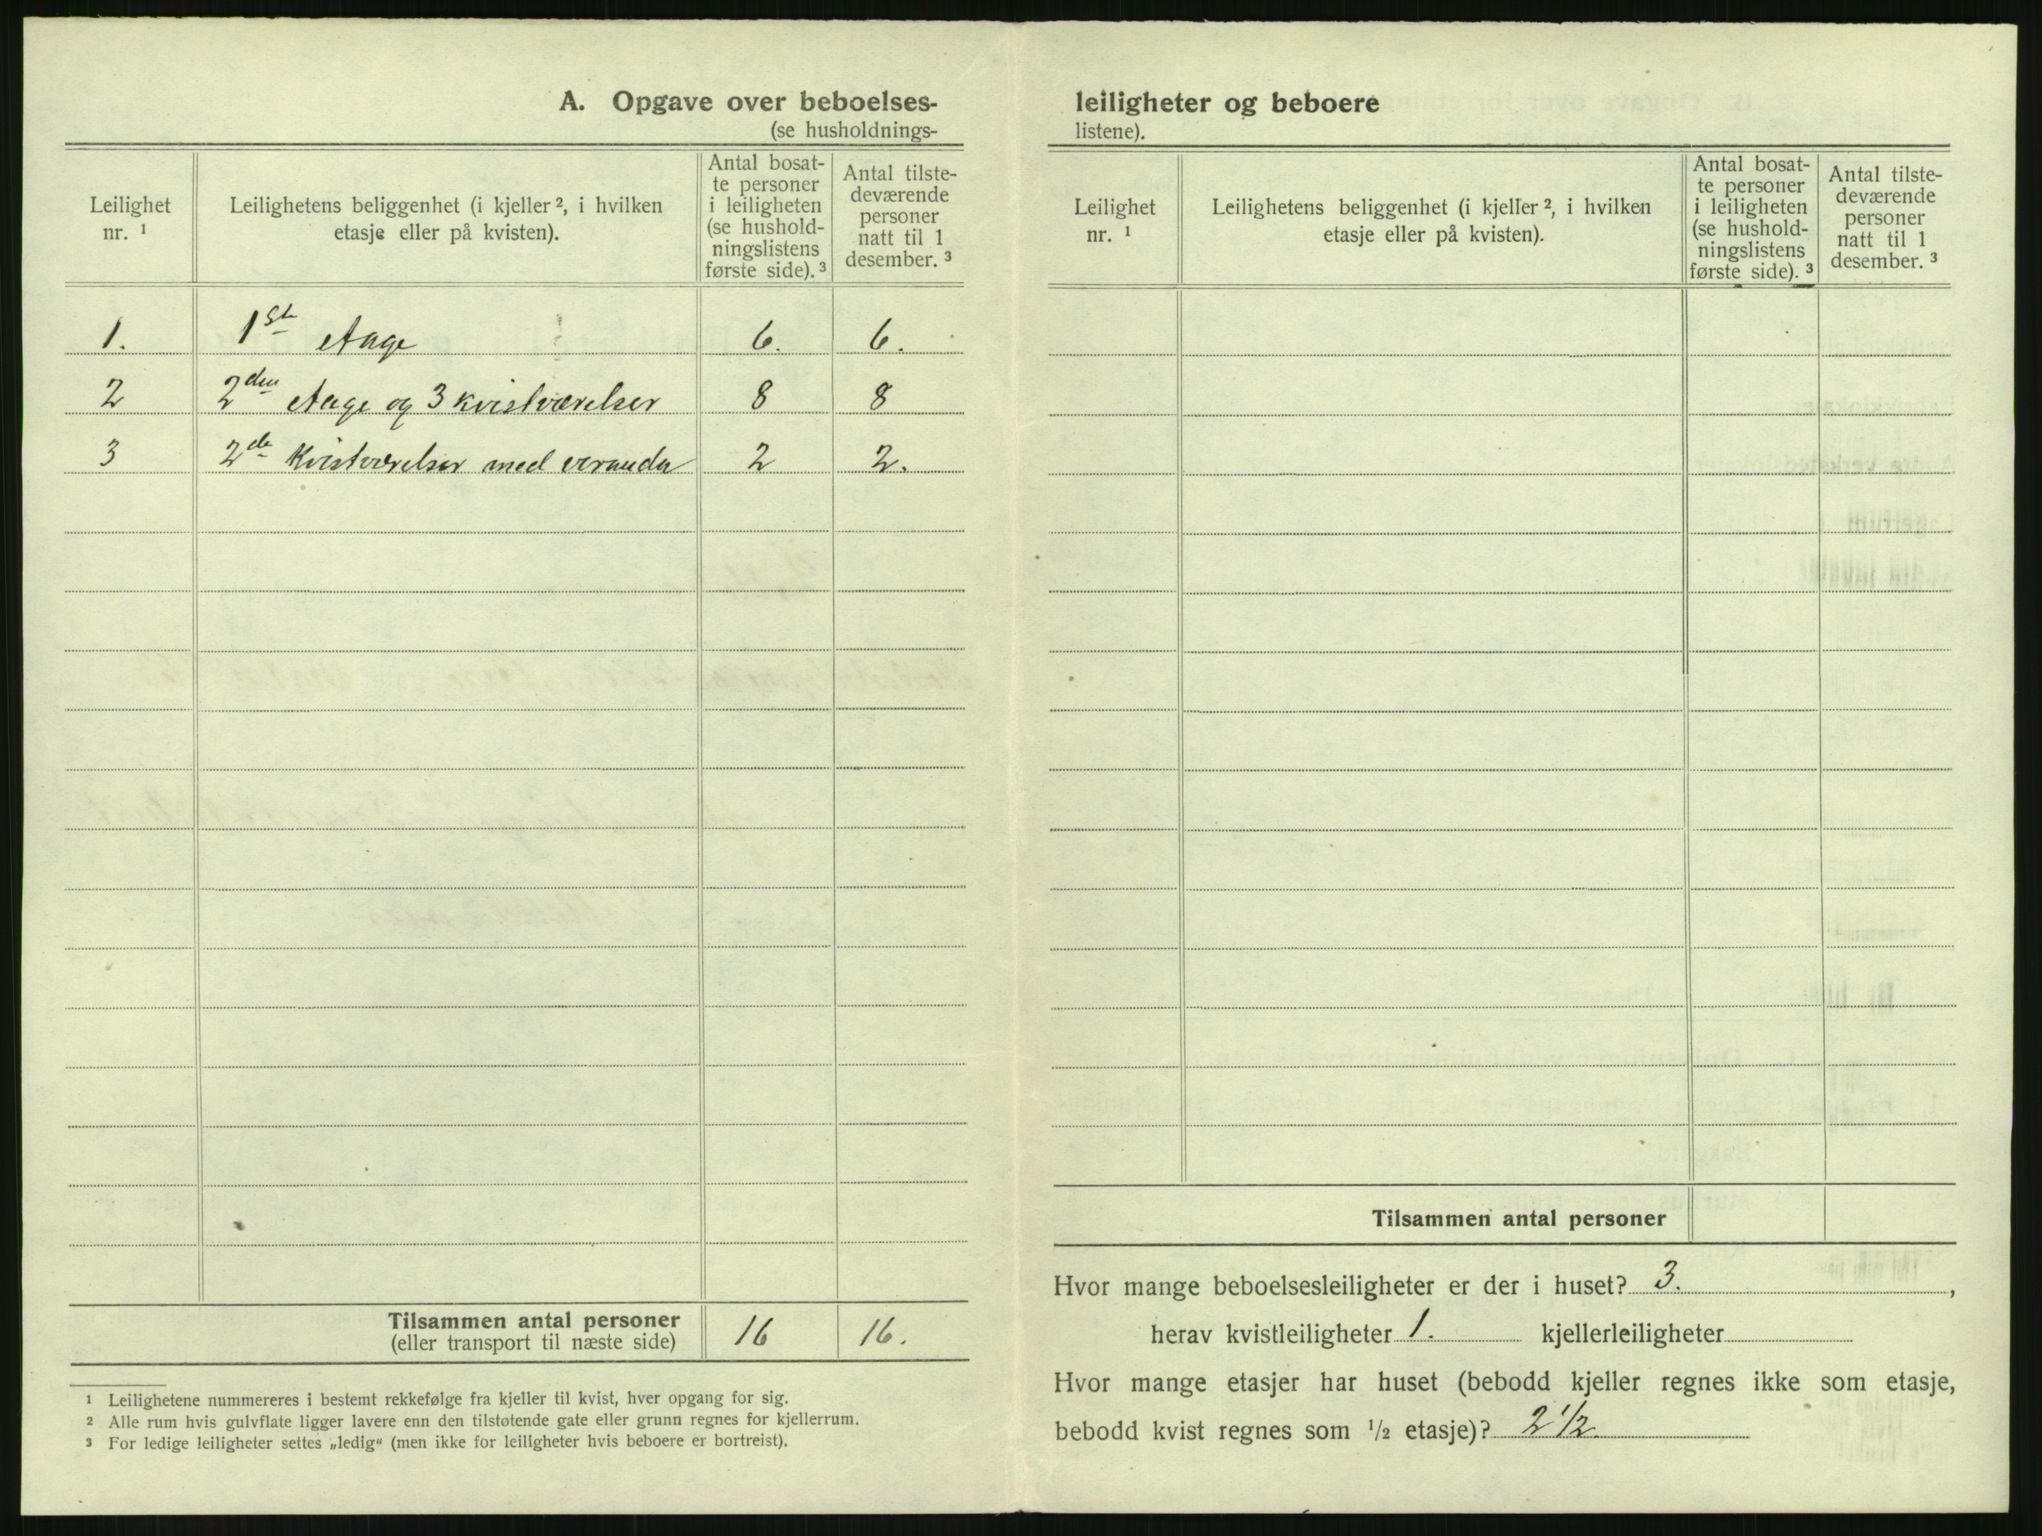 A. Opgave over beboelses-
(se husholdnings-
Leilighet
nr. 1
Leilighetens beliggenhet (i kjeller 2, i hvilken
etasje eller på kvisten).
Antal bosat-
te personer
i leiligheten
(se hushold-
ningslistens
første side). 3
Antal tilste-
deværende
personer
natt til 1
desember. 3
1. 1ste Aage 6. 6.
2 2den Aage og 3 kvistværelser 8 8
3 2de Kvistværelser med veranda 2 2.
Tilsammen antal personer
(eller transport til næste side)
16 16.
1 Leilighetene nummereres i bestemt rekkefølge fra kjeller til kvist, hver opgang for sig.
2 Alle rum hvis gulvflate ligger lavere enn den tilstøtende gate eller grunn regnes for kjellerrum.
3 For ledige leiligheter settes „ledig“ (men ikke for leiligheter hvis beboere er bortreist).
leiligheter og beboere
listene).
Leilighet
nr. 1
Leilighetens beliggenhet (i kjeller 2, i hvilken
etasje eller på kvisten).
Antal bosat-
te personer
i leiligheten
(se hushold-
ningslistens
første side). 3
Antal tilste-
deværende
personer
natt til 1
desember. 3
Tilsammen antal personer
Hvor mange beboelsesleiligheter er der i huset? 3. ,
herav kvistleiligheter 1. kjellerleiligheter
Hvor mange etasjer har huset (bebodd kjeller regnes ikke som etasje,
bebodd kvist regnes som 1/2 etasje)? 2 1/2.